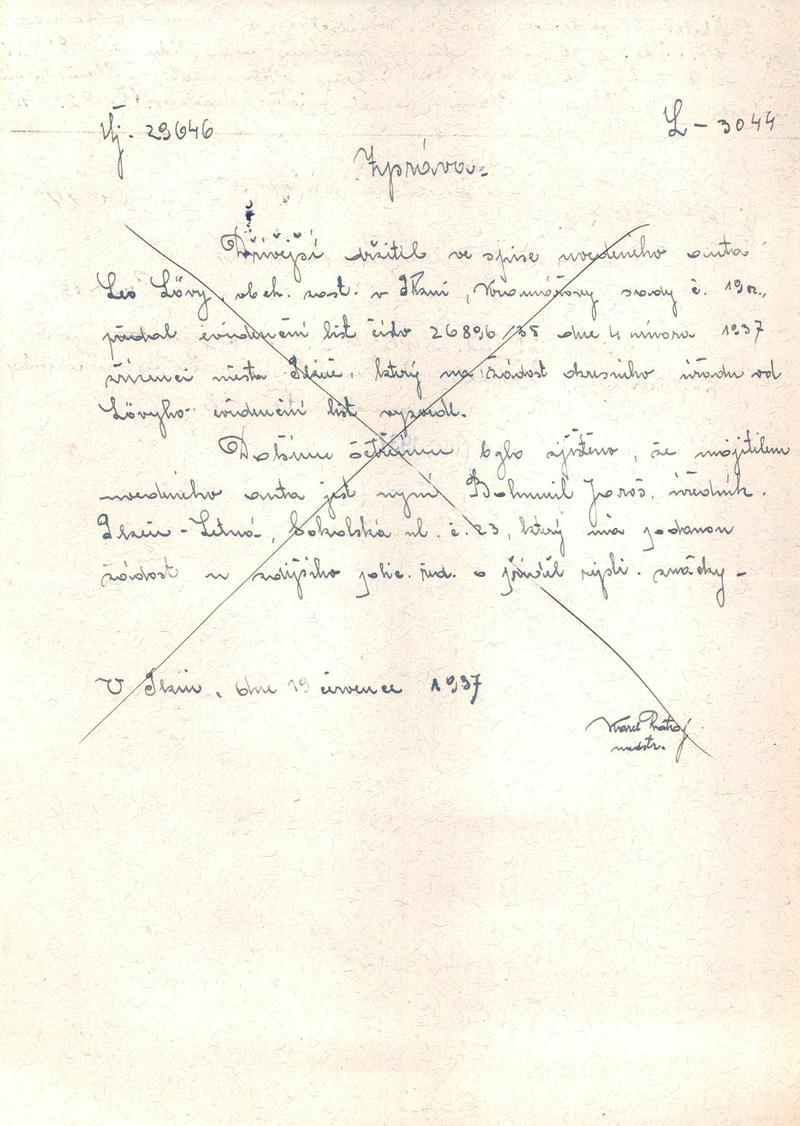 Čj. 29646 L - 3044
Zpráva.
Dřívější držitel ve spise uvedeného auta
Leo Löwy, obch. zást. v Plzni, sady č. 19 n.,
předal evidenční list číslo 26896/35 dne 4 února 1937
zřízenci města Plzně, který na žádost okresního úřadu od
Löwyho evidenční list vyzvedl.
Dalším šetřením bylo zjištěno, že majitelem
uvedeného auta jest nyní Bohumil Jaroš, úředník.
Plzeň - Letná, Sokolská ul. č. 23, který má podanou
žádost u zdejšího polic. řed. o příděl značky -
V Plzni, dne 19 července 1937
Karel
nadstr.